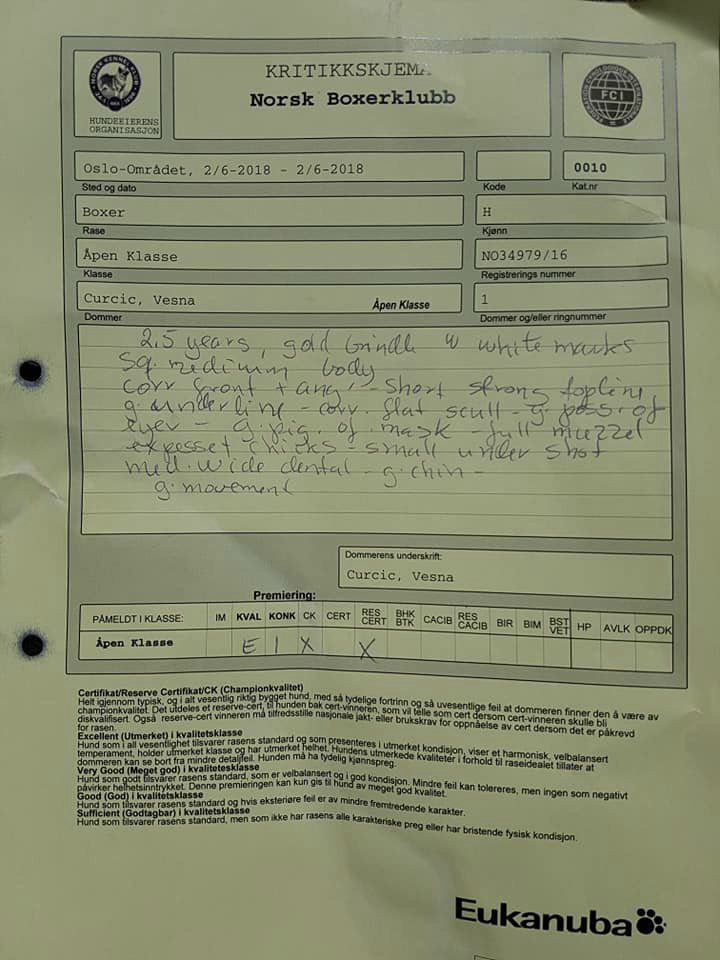 KRITIKKSKJEMA
Norsk Boxerklubb
NORSK KENNEL KLUB
HUNDEEIERENS
ORGANISASJON
FEDERATION CYNOLOGIQUE INTERNATIONALE
FCI
Oslo-Området, 2/6-2018 - 2/6-2018
0010
Sted og dato
Kode
Kat.nr
Boxer
H
Rase
Kjønn
Åpen Klasse
NO34979/16
Klasse
Registrerings nummer
Curcic, Vesna
Åpen Klasse
1
Dommer
Dommer og/eller ringnummer
2,5 years, gold brindle w white marks
Sq. medium body
corr front + ang. - short strong topline
g. underline - corr. flat scull - g. poss. of
eyes - g. pig. of mask - full muzzel
expesset chicks - small under shot
med. wide dental - g. chin -
g. movement
Dommerens underskrift:
Curcic, Vesna
Premiering:
PÅMELDT I KLASSE: IM KVAL KONK CK CERT RES CERT BHK BTK CACIB RES CACIB BIR BIM BST VET HP AVLK OPPDK
Åpen Klasse E 1 X X
Certifikat/Reserve Certifikat/CK (Championkvalitet)
Helt igjennom typisk, og i alt vesentlig riktig bygget hund, med så tydelige fortrinn og så uvesentlige feil at dommeren finner den å være av
championkvalitet. Det utdeles et reserve-cert, til hunden bak cert-vinneren, som vil telle som cert dersom cert-vinneren skulle bli
diskvalifisert. Også reserve-cert vinneren må tilfredsstille nasjonale jakt- eller brukskrav for oppnåelse av cert dersom det er påkrevd
for rasen.
Excellent (Utmerket) i kvalitetsklasse
Hund som i all vesentlighet tilsvarer rasens standard og som presenteres i utmerket kondisjon, viser et harmonisk, velbalansert
temperament, holder utmerket klasse og har utmerket helhet. Hundens utmerkede kvaliteter i forhold til raseidealet tillater at
dommeren kan se bort fra mindre detaljfeil. Hunden må ha tydelig kjønnspreg.
Very Good (Meget god) i kvalitetesklasse
Hund som godt tilsvarer rasens standard, som er velbalansert og i god kondisjon. Mindre feil kan tolereres, men ingen som negativt
påvirker helhetsinntrykket. Denne premieringen kan kun gis til hund av meget god kvalitet.
Good (God) i kvalitetsklasse
Hund som tilsvarer rasens standard og hvis eksteriøre feil er av mindre fremtredende karakter.
Sufficient (Godtagbar) i kvalitetsklasse
Hund som tilsvarer rasens standard, men som ikke har rasens alle karakteriske preg eller har bristende fysisk kondisjon.
Eukanuba